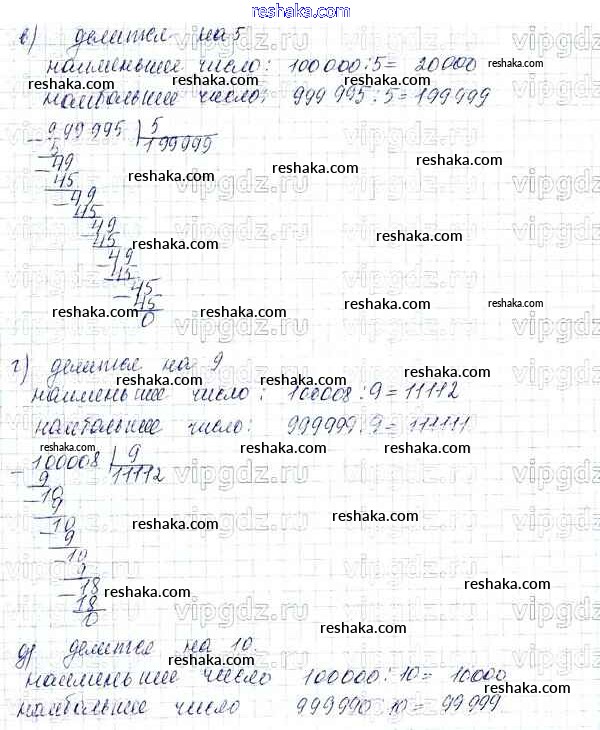 reshaka.com
в) делится на 5
наименьшее число: 100000:5= 20000
наибольшее число: 999 995:5=199999
999995 | 5
199999
5
49
45
49
45
49
45
49
45
45
45
0
г) делится на 9
наименьшее число: 100008:9=11112
наибольшее число: 999999:9=111111
100008 | 9
11112
9
10
9
10
9
10
9
18
18
0
д) делится на 10.
наименьшее число 100000:10= 10000
наибольшее число 999990:10=99999
vipgdz.ru